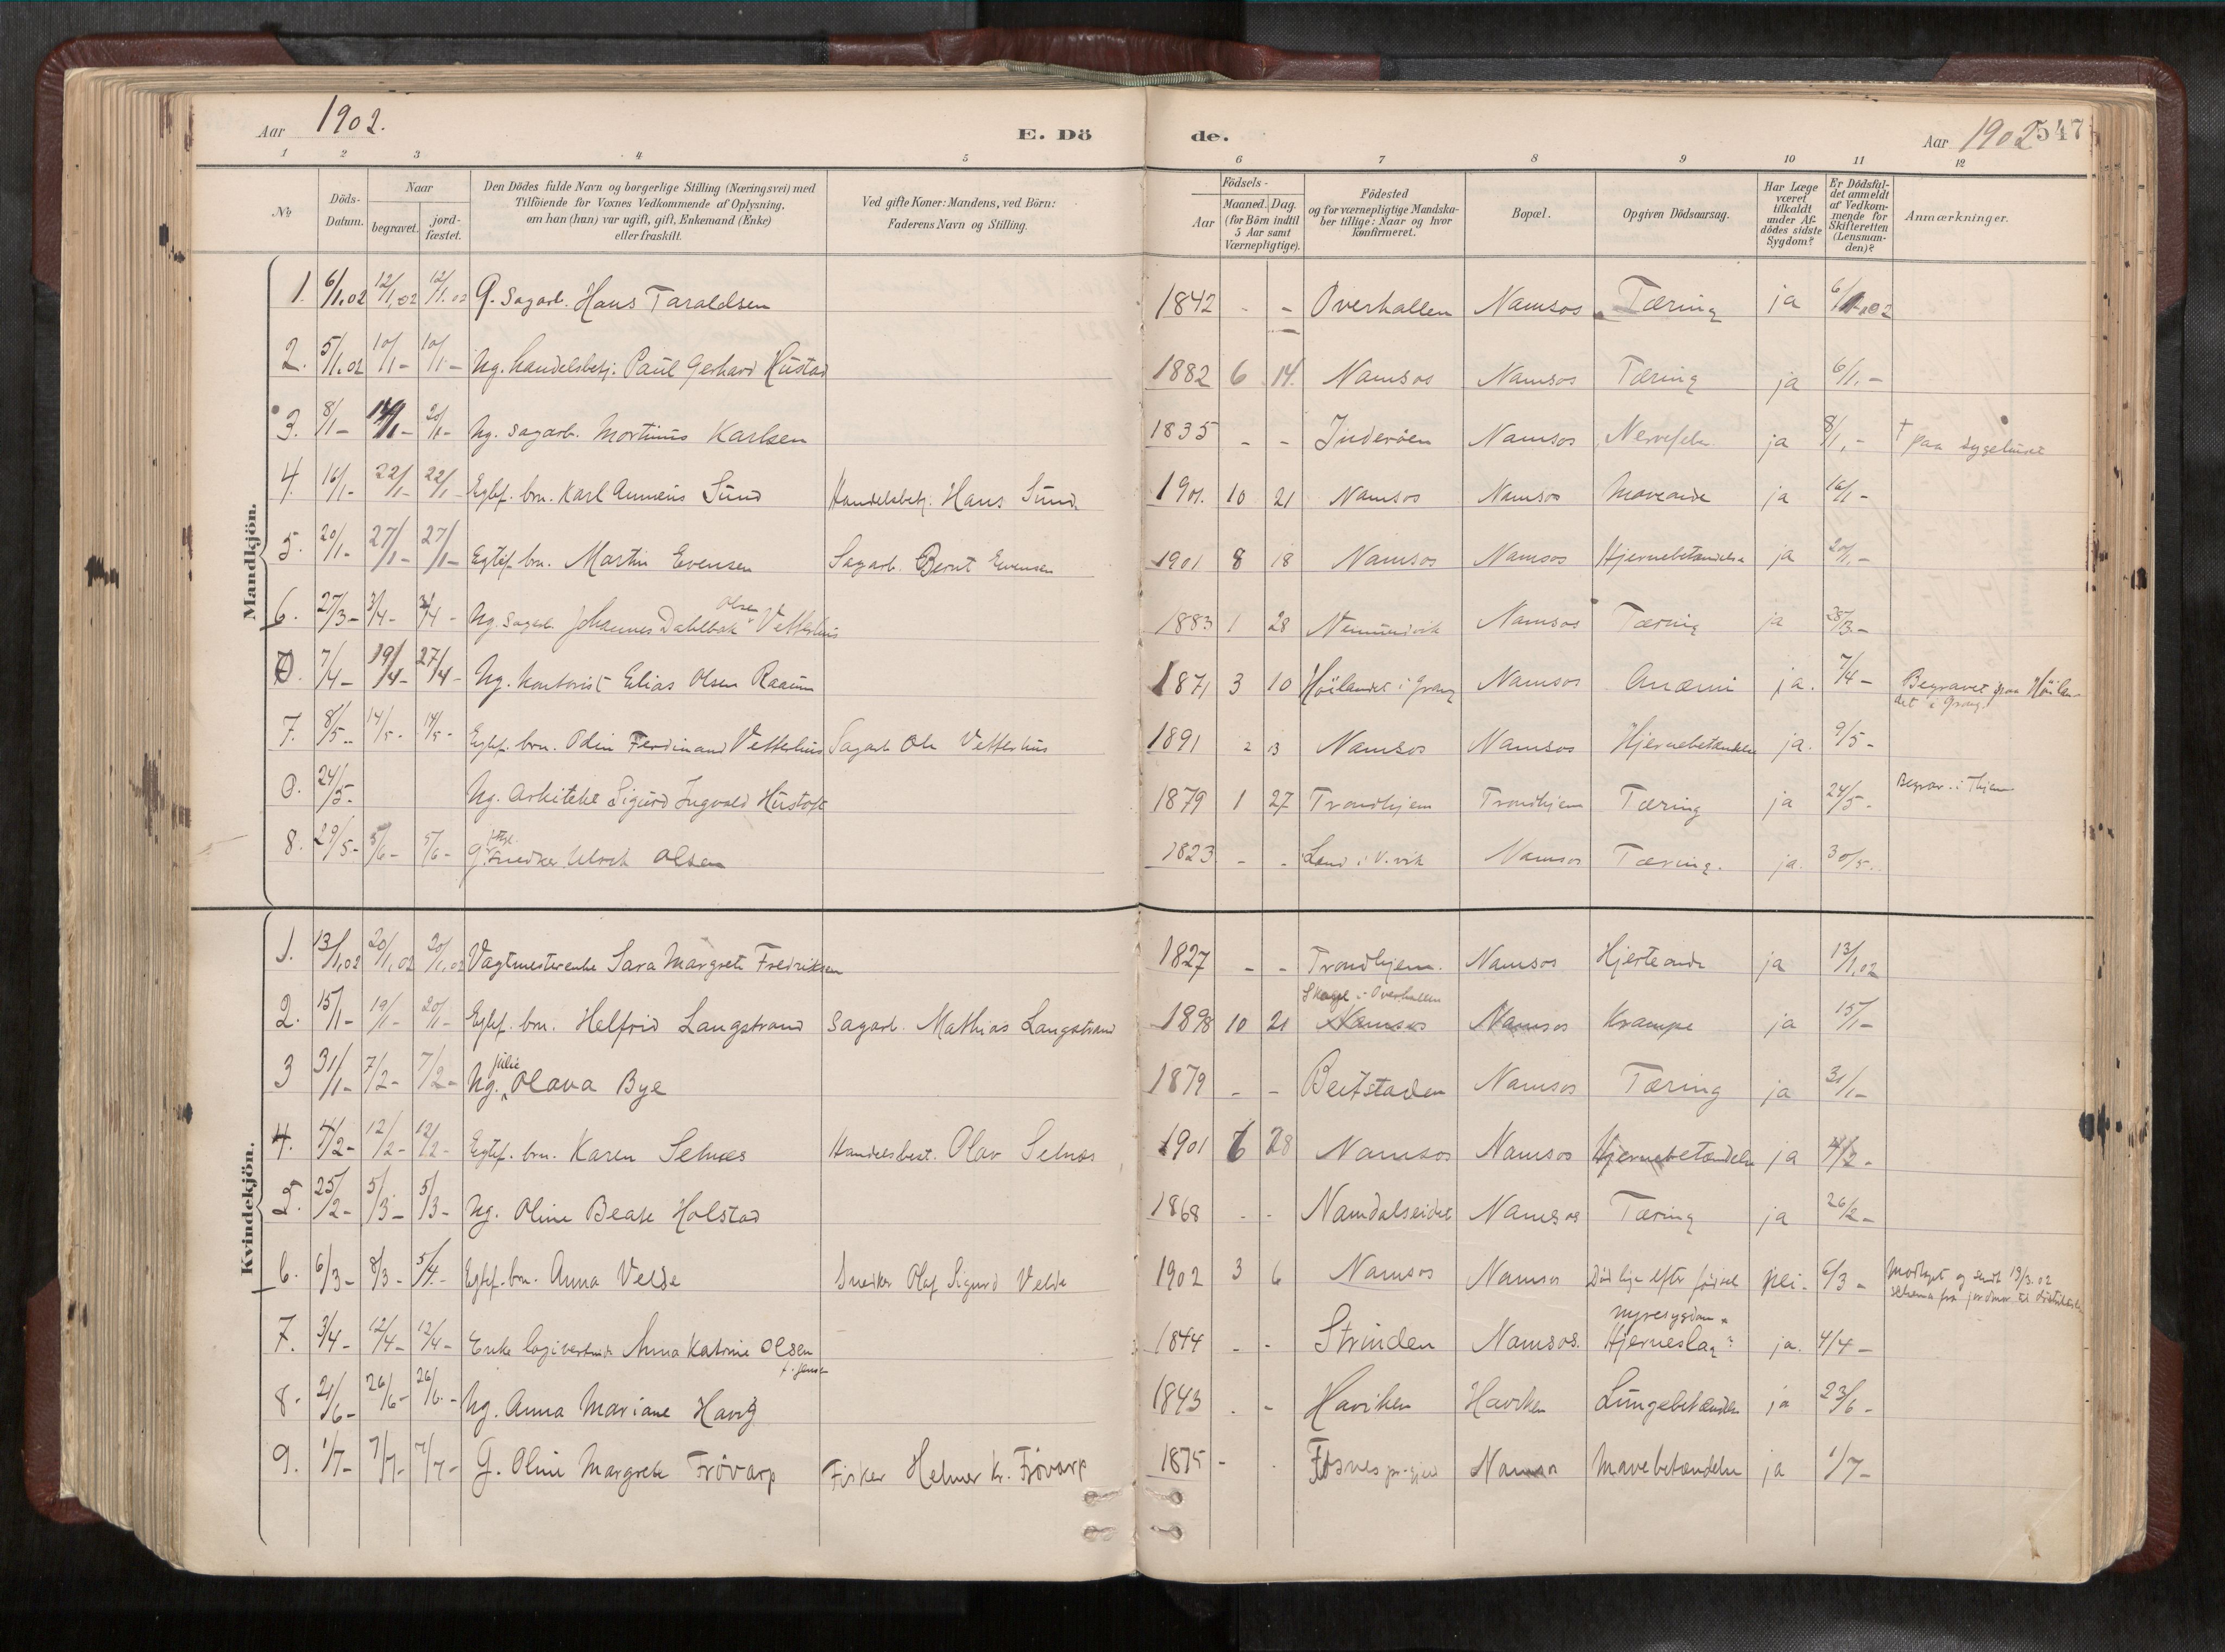 Aar 1902.
E. Dö de.
Aar 1902 547
1 2 3 4 5 6 7 8 9 10 11 12
No
Döds-Datum.
Naar
begravet.
jord-fæstet.
Den Dödes fulde Navn og borgerlige Stilling (Næringsvei) med
Tilföiende for Voxnes Vedkommende af Oplysning,
om han (hun) var ugift, gift, Enkemand (Enke)
eller fraskilt.
Ved gifte Koner: Mandens, ved Börn:
Faderens Navn og Stilling.
Födsels-
Aar
Maaned. Dag.
(for Börn indtil
5 Aar samt
Værnepligtige).
Födested
og for værnepligtige Mandska-
ber tillige: Naar og hvor
Konfirmeret.
Bopæl.
Opgiven Dödsaarsag.
Har Læge
været
tilkaldt
under Af-
dödes sidste
Sygdom?
Er Dödsfal-
det anmeldt
af Vedkom-
mende for
Skifteretten
(Lensman-
den)?
Anmærkninger.
Mandkjön.
1. 6/1.02 12/1.02 12/1.02 G. Sagarb. Hans Taraldsen 1842 - - Overhallen Namsos Tæring ja 6/1.02
2. 5/1.02 10/1- 10/1- Ug. handelsbetj. Paul Gerhard Hustad 1882 6 14. Namsos Namsos Tæring ja 6/1.-
3. 8/1- 14/1- 20/1- Ug. sagarb. Mortinus Karlsen 1835 - - Inderöen Namsos ja 8/1.- † paa sygehuset
4. 16/1- 22/1- 22/1- Egtef. brn. Karl Anneus Sund Handelsbetj. Hans Sund. 1901. 10 21 Namsos Namsos Maveonde ja 16/1-
5. 20/1- 27/1- 27/1- Egtef. brn. Martin Evensen Sagarb. Bernt Evensen 1901 8 18 Namsos Namsos Hjernebetændelse ja 20/1.-
6. 27/3- 3/4- 3/4- Ug. Sagarb. Johannes Dahlbak Olsen Vetterhus 1883 1 28 Namsos Tæring ja 28/3.-
0. 7/4- 19/4- 27/4- Ug. Kontorist Elias Olsen Raaum 1871 3 10 Höilandet i Grong Namsos Anæmi ja. 7/4- Begravet paa Höilan-
det i Grong.
7. 8/5- 14/5- 14/5- Egtef. brn. Odin Ferdinand Vetterhus Sagarb Ole Vetterhus 1891 2 13 Namsos Namsos Hjernebetændelse ja. 9/5-
0. 24/5- Ug. Arkitekt Sigurd Ingvald Hustoft 1879 1 27 Trondhjem Trondhjem Tæring ja 24/5- Begrav. i Thjem
8. 29/5- 5/6- 5/6- G. Snedker Ulrik Olsen 1823 - - Namsos Tæring. ja. 30/5-
Kvindekjön.
1. 13/1.02 20/1.02 20/1.02 Vagtmesterenke Sara Margrete Fredriksen 1827 - - Trondhjem. Namsos Hjerteonde ja 13/1.02
2. 15/1- 19/1- 20/1- Egtef. brn. Helfrid Langstrand Sagarb. Mathias Langstrand 1898 10 21 Skage i Overhallen Namsos Namsos Krampe ja 15/1-
3 31/1- 7/2- 7/2- Ug. Julie Olava Bye 1879 - - Beitstaden Namsos Tæring ja 31/1-
4. 4/2- 12/2- 12/2- Egtef. brn. Karen Selnæs Handelsbest. Olav Selnæs 1901 6 28 Namsos Namsos Hjernebetændelse ja 4/2-
5. 25/2- 5/3- 5/3- Ug. Oline Beate Holstad 1868 - - Namdalseidet Namsos Tæring ja 26/2-
6. 6/3- 8/3- 5/4- Egtef. brn. Anna Velde Snedker Olaf Sigurd Velde 1902 3 6 Namsos Namsos Död lige efter födsel nei- 6/3- Modtaget og sendt 19/3.02
schema fra jordmor til
7. 3/4- 12/4- 12/4- Enke Anna Katrine Olsen f. Jensen 1844 - - Strinden Namsos. Nyresygdom Hjerneslag ja. 4/4-
8. 21/6- 26/6- 26/6- Ug. Anna Mariane Havig 1843 - - Haviken Haviken Lungebetændelse ja 23/6-
9. 1/7- 7/7- 7/7- G. Oline Margrete Frövarp Fisker Helmer Kr. Frövarp 1875 - - Fosnes pr.gjeld Namsos Mavebetændelse ja 1/7-